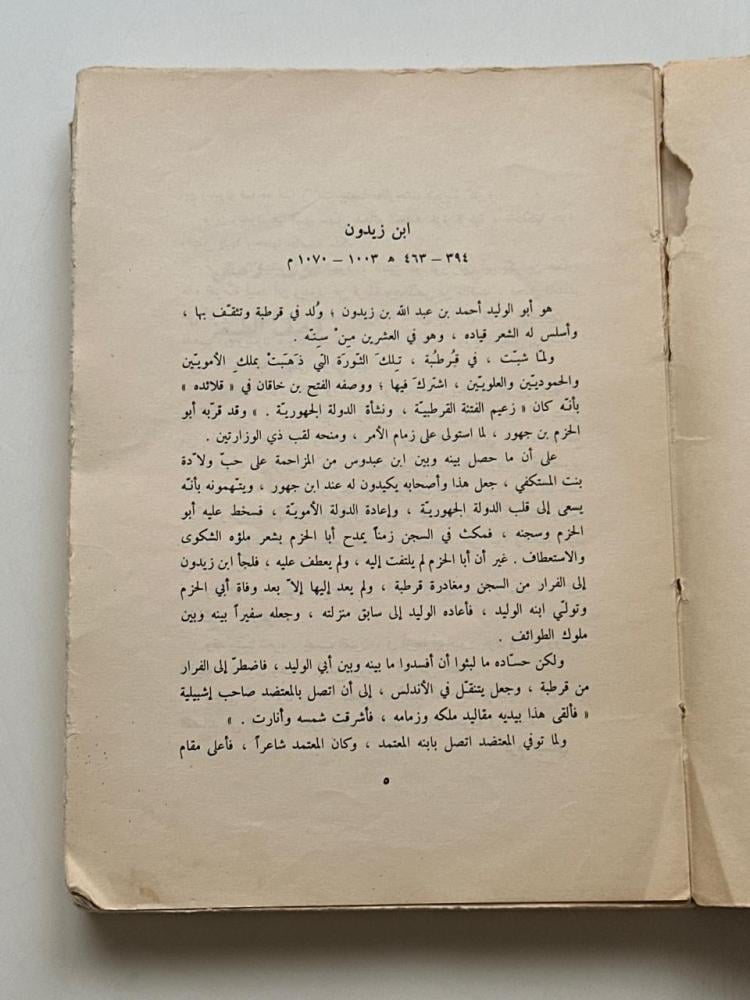 ابن زيدون
٣٩٤ – ٤٦٣ ه ١٠٠٣ – ١٠٧٠ م
هو أبو الوليد أحمد بن عبد الله بن زيدون ؛ وُلد في قرطبة وتثقّف بها ،
وأسلس له الشعر قياده ، وهو في العشرين مِنْ سِنّه .
ولمّا شبّت ، في قُرطُبة ، تِلكَ الثّورَة الّتي ذَهَبَتْ بملكِ الأمويّين
والحموديّين والعلويّين ، اشتركَ فيها ؛ ووصفه الفتح بن خاقان في « قلائده »
بأنّه كان « زعيم الفتنة القرطبيّة ، ونشأة الدولة الجهوريّة . » وقد قرّبه أبو
الحزم بن جهور ، لما استولى على زمام الأمر ، ومنحه لقب ذي الوزارتين .
على أن ما حصل بينه وبين ابن عبدوس من المزاحمة على حبّ ولاّدة
بنت المستكفي ، جعل هذا وأصحابه يكيدون له عند ابن جهور ، ويتّهمونه بأنّه
يسعى إلى قلب الدولة الجهوريّة ، وإعادة الدولة الأمويّة ، فسخط عليه أبو
الحزم وسجنه ، فمكث في السجن زمناً يمدح أبا الحزم بشعر ملؤه الشكوى
والاستعطاف . غير أن أبا الحزم لم يلتفت إليه ، ولم يعطف عليه ، فلجأ ابن زيدون
إلى الفرار من السجن ومغادرة قرطبة ، ولم يعد إليها إلاّ بعد وفاة أبي الحزم
وتولّي ابنه الوليد ، فأعاده الوليد إلى سابق منزلته ، وجعله سفيراً بينه وبين
ملوك الطوائف .
ولكن حسّاده ما لبثوا أن أفسدوا ما بينه وبين أبي الوليد ، فاضطرّ إلى الفرار
من قرطبة ، وجعل يتنقّل في الأندلس ، إلى أن اتصل بالمعتضد صاحب إشبيلية
« فألقى هذا بيديه مقاليد ملكه وزمامه ، فأشرقت شمسه وأنارت . »
ولما توفي المعتضد اتصل بابنه المعتمد ، وكان المعتمد شاعراً ، فأعلى مقام
٥